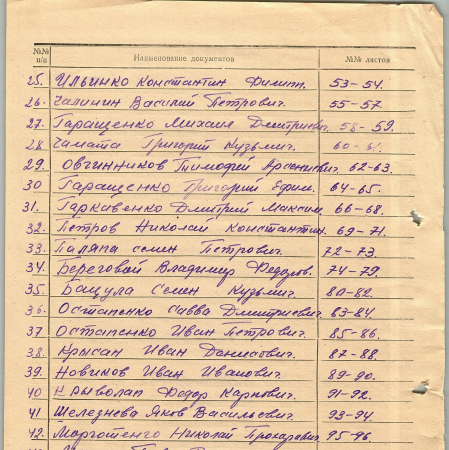 №№ п/п Наименование документов №№ листов
25. Ильинко Константин Филип. 53-54.
26. Галинин Василий Петрович. 55-57
27. Гаращенко Михаил Дмитриевич. 58-59.
28. Гамата Григорий Кузьмич. 60-61.
29. Овчинников Тимофей Арсеньевич. 62-63.
30 Гаращенко Григорий Ефим. 64-65.
31. Гаркавенко Дмитрий Максим. 66-68.
32. Петров Николай Константин. 69-71.
33. Паляпа Семен Петрович. 72-73.
34. Береговой Владимир Федоров. 74-79.
35. Бацула Семен Кузьмич. 80-82.
36. Остапенко Савва Дмитриевич. 83-84.
37 Остапенко Иван Петрович. 85-86.
38. Крысан Иван Денисович. 87-88.
39. Новиков Иван Иванович. 89-90.
40 Крыволап Федор Карпович. 91-92.
41 Шеледнева Яков Васильевич. 93-94.
42. Николай 95-96.